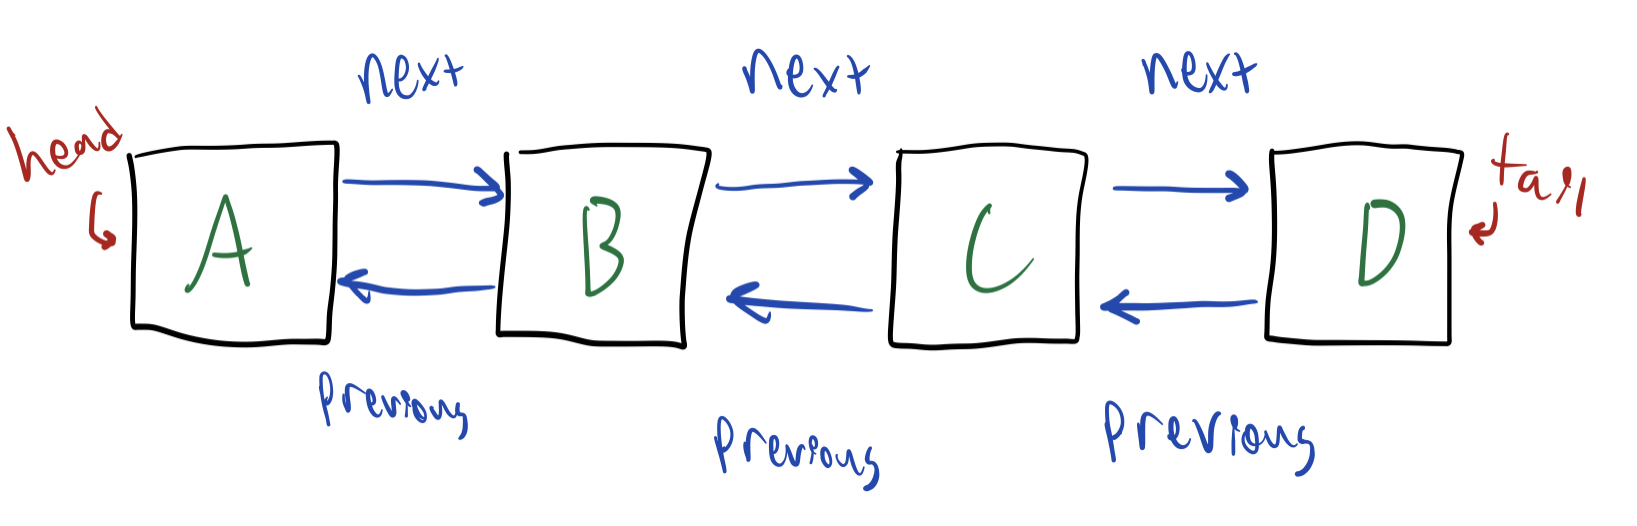 next next next
head tail
A B C D
Previous Previous Previous